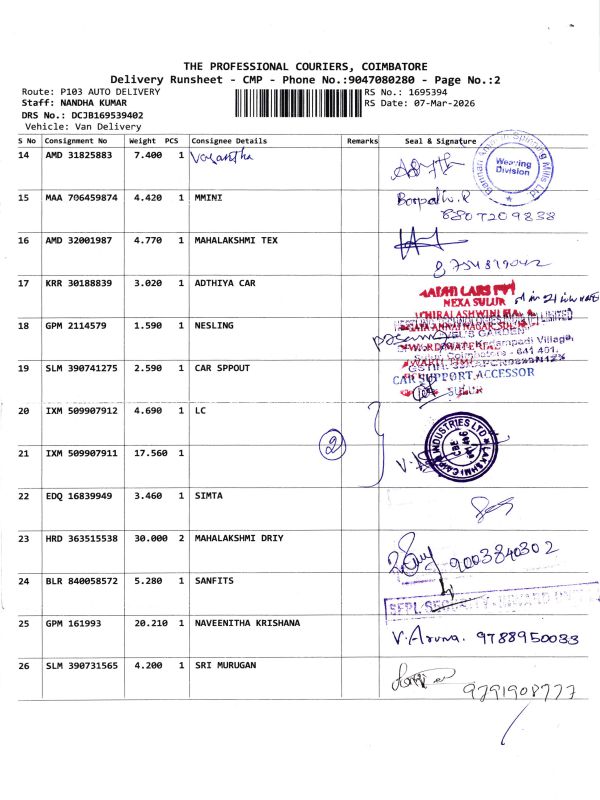 THE PROFESSIONAL COURIERS, COIMBATORE
Delivery Runsheet - CMP - Phone No.:9047080280 - Page No.:2
Route: P103 AUTO DELIVERY
Staff: NANDHA KUMAR
DRS No.: DCJB169539402
Vehicle: Van Delivery
RS No.: 1695394
RS Date: 07-Mar-2026
S No Consignment No Weight PCS Consignee Details Remarks Seal & Signature
14 AMD 31825883 7.400 1 Vasantha
Weaving Division
15 MAA 706459874 4.420 1 MMINI
16 AMD 32001987 4.770 1 MAHALAKSHMI TEX
17 KRR 30188839 3.020 1 ADTHIYA CAR
NEXA SULUR
18 GPM 2114579 1.590 1 NESLING
19 SLM 390741275 2.590 1 CAR SPPOUT
CAR SUPPORT ACCESSOR
SULUR
20 IXM 509907912 4.690 1 LC
21 IXM 509907911 17.560 1
2
22 EDQ 16839949 3.460 1 SIMTA
23 HRD 363515538 30.000 2 MAHALAKSHMI DRIY
9003840302
24 BLR 840058572 5.280 1 SANFITS
25 GPM 161993 20.210 1 NAVEENITHA KRISHANA
V. Aruna. 9788950033
26 SLM 390731565 4.200 1 SRI MURUGAN
9791908777